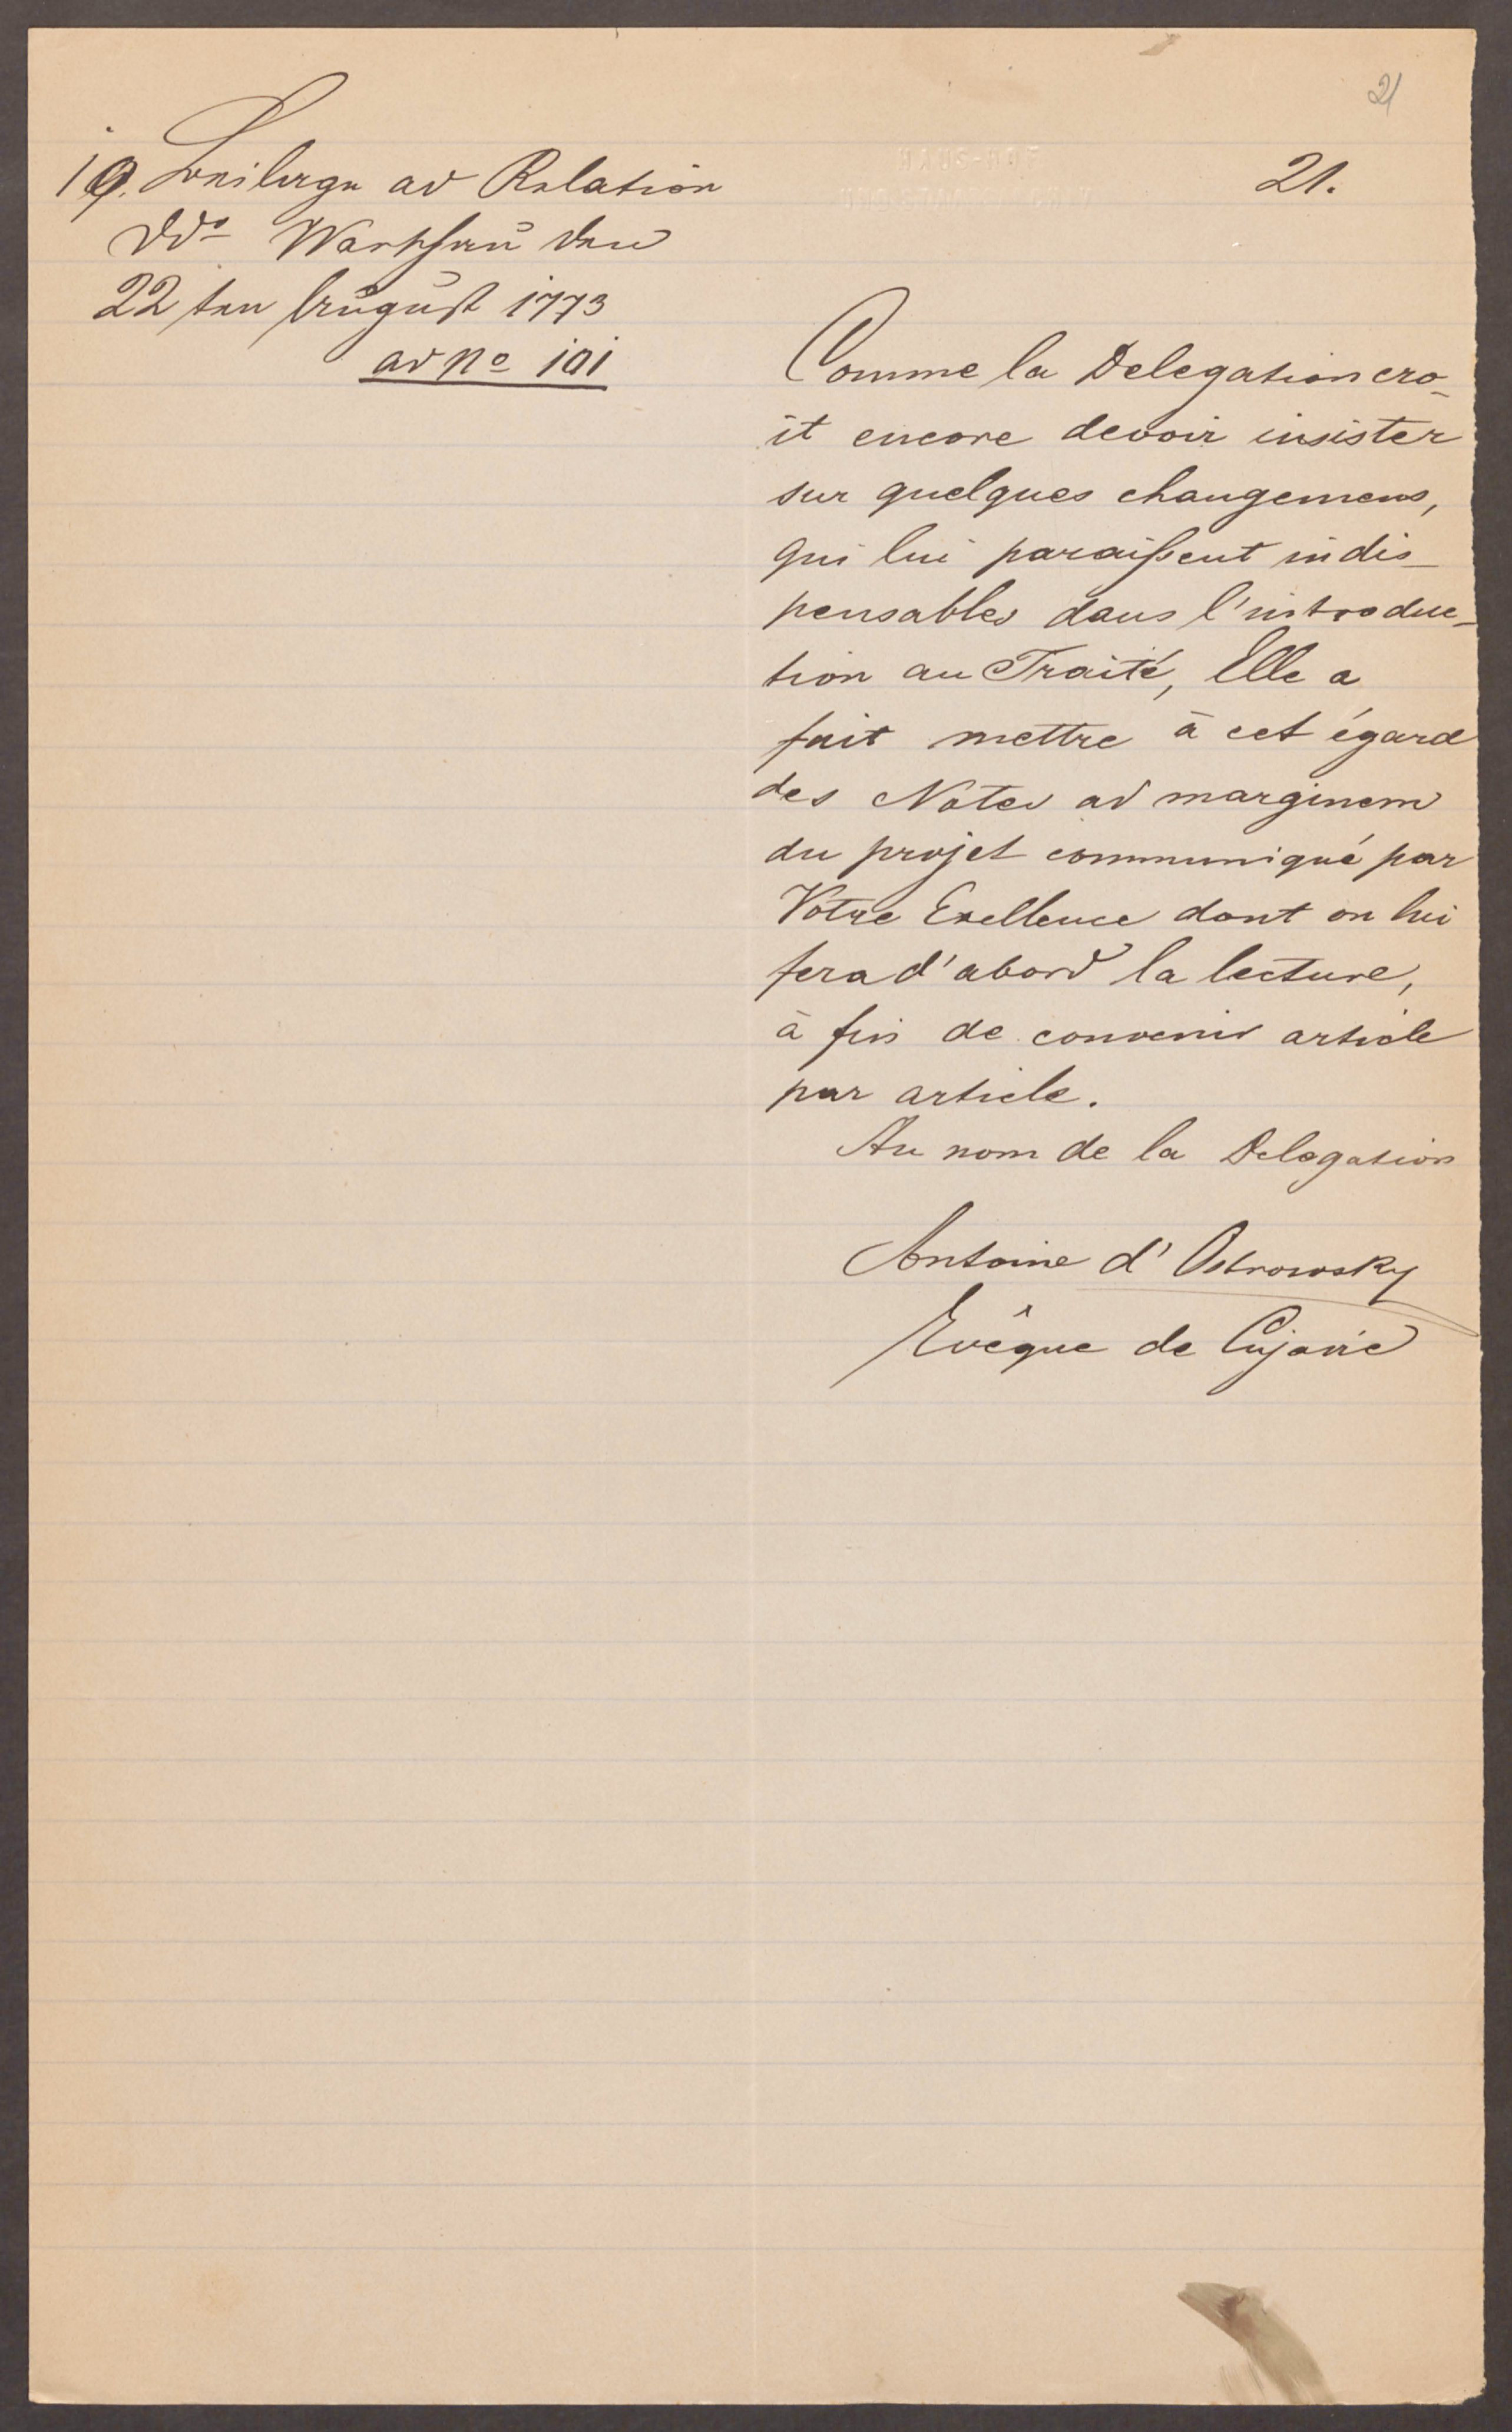 21
21.
19. Beilage ad Relation
ddo Warschau den
22ten August 1773
ad No 101
Comme la Delegation cro-
it encore devoir insister
sur quelques changemens,
qui lui paraißent indis-
pensables dans l'introduc-
tion au Traité, Elle a
fait mettre à cet égard
des Notes ad marginem
du projet communiqué par
Votre Exellence dont on lui
fera d'abord la lecture,
à fin de convenir article
par article.
Au nom de la Delegation
Antoine d'Ostrowsky
Evêque de Cujavie